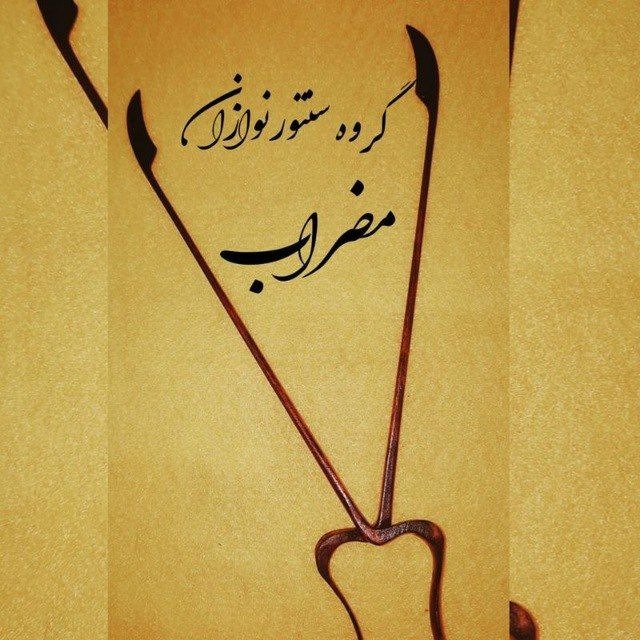 گروه سنتور نوازان
مضراب